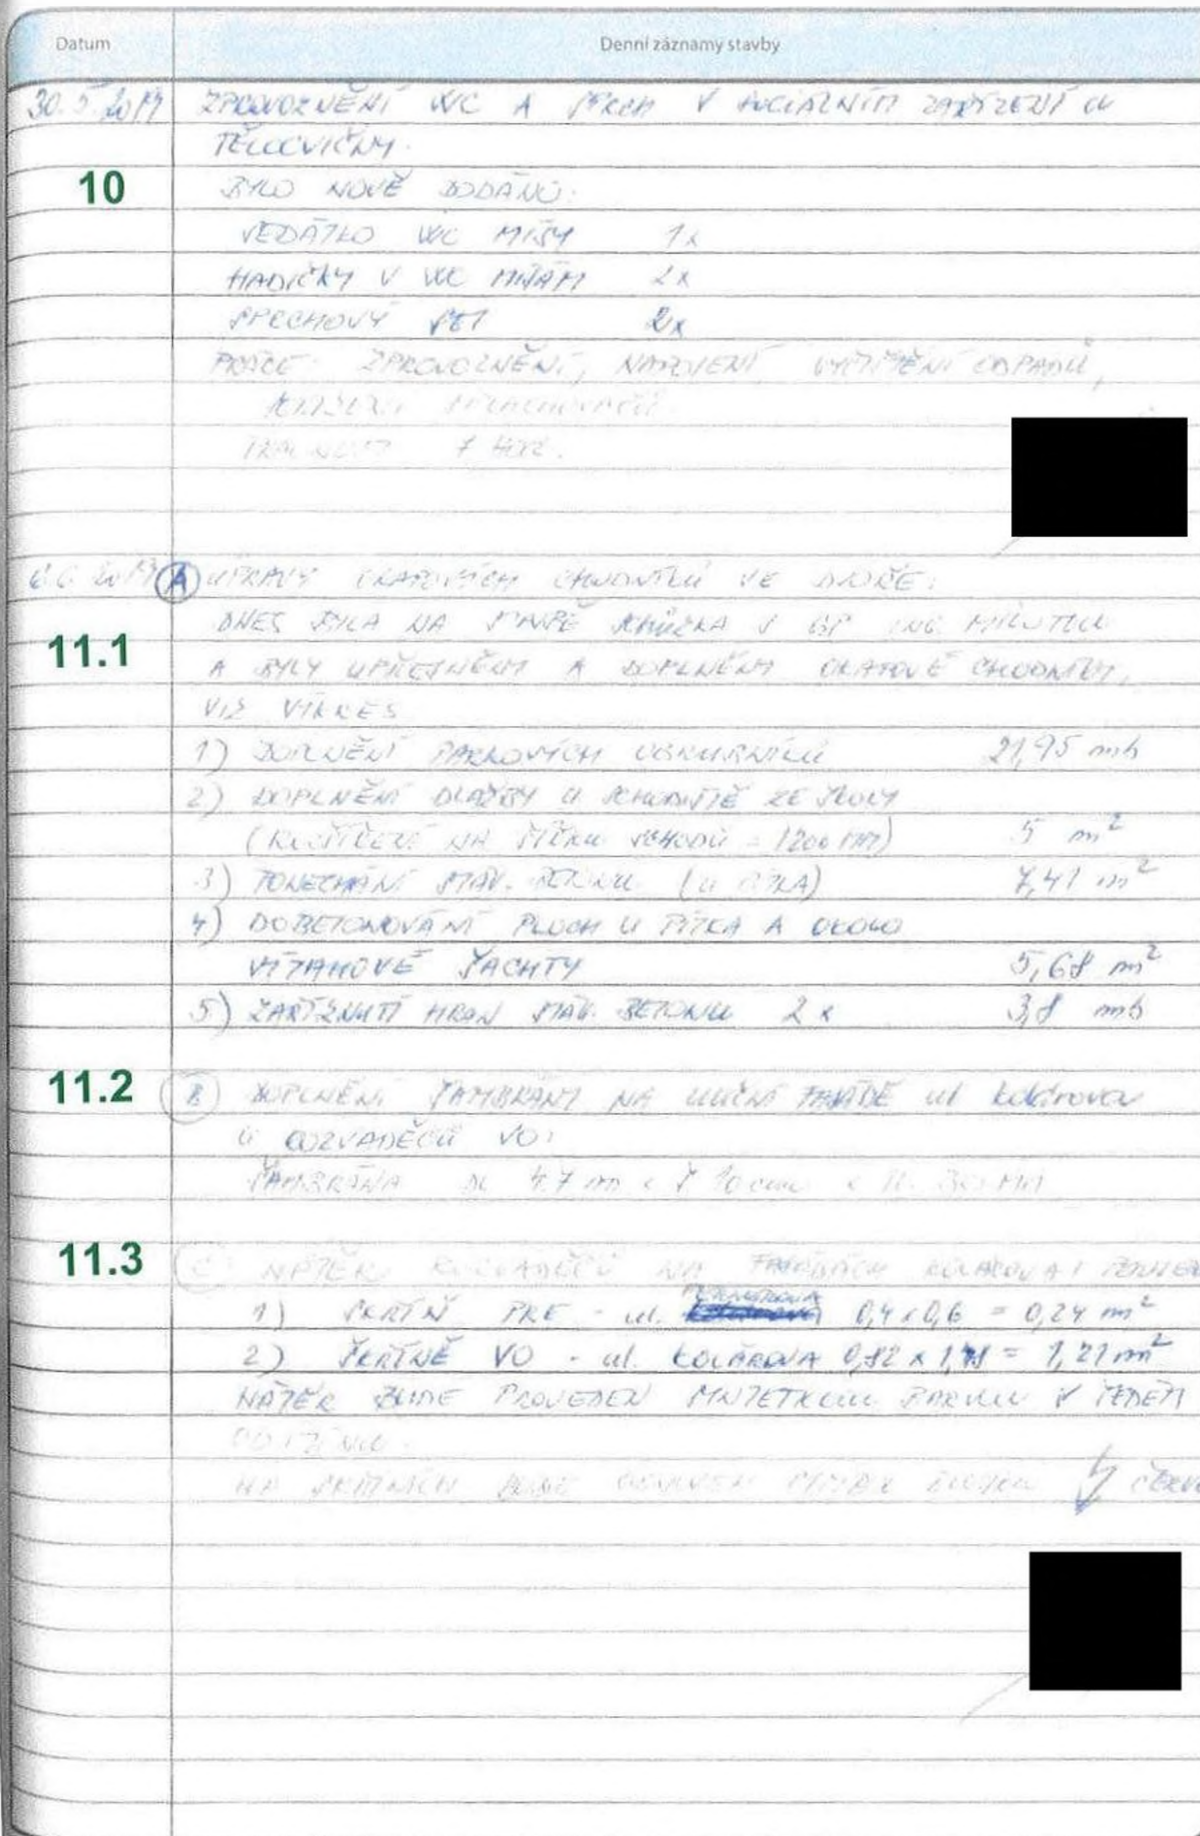 Datum Denní záznamy stavby
30.5.2017 ZPROVOZNĚNÍ WC A SPRCH V SOCIÁLNÍM ZAŘÍZENÍ U
TĚLOCVIČNY.
10 BYLO NOVĚ DODÁNO:
SEDÁTKO WC MÍSY 1x
HADIČKY V WC MÍSÁM 2x
SPRCHOVÝ SET 2x
PRÁCE: ZPROVOZNĚNÍ, NAPOJENÍ, VYČIŠTĚNÍ ODPADŮ,
SPLACHOVAČŮ
7 HOD.
6.6.2017 A ÚPRAVY OKAPOVÝCH CHODNÍKŮ VE DVOŘE:
11.1 DNES BYLA NA STAVBĚ SCHŮZKA S GP ING.
A BYLY UPŘESNĚNY A DOPLNĚNY OKAPOVÉ CHODNÍKY,
VIZ VÝKRES
1) DOPLNĚNÍ PARKOVÝCH OBRUBNÍKŮ 21,95 mb
2) DOPLNĚNÍ DLAŽBY U SCHODIŠTĚ ZE ŠKOLY
(ROZŠÍŘENÍ NA ŠÍŘKU SCHODŮ - 1200 mm) 5 m²
3) PONECHÁNÍ STÁV. BETONU (U PÍTKA) 7,41 m²
4) DOBETONOVÁNÍ PLOCH U PÍTKA A OKOLO
VÝTAHOVÉ ŠACHTY 5,68 m²
5) ZAŘÍZNUTÍ HRAN STÁV. BETONU 2x 3,8 mb
11.2 B DOPLNĚNÍ ŠAMBRÁNY NA ULIČNÍ FASÁDĚ ul Kolárova
U ROZVADĚČŮ VO:
ŠAMBRÁNA DL 4,7 m x Š 10 cm x
11.3 C NÁTĚR ROZVADĚČŮ NA FASÁDÁCH KOLÁROVA
1) SKŘÍŇ PRE - ul. 0,4 x 0,6 = 0,24 m²
2) SKŘÍNĚ VO - ul. KOLÁROVA 0,82 x = 1,21 m²
NÁTĚR BUDE PROVEDEN SYNTETICKOU BARVOU V ŠEDÉM
ODSTÍNU.
NA SKŘÍNÍCH BUDE